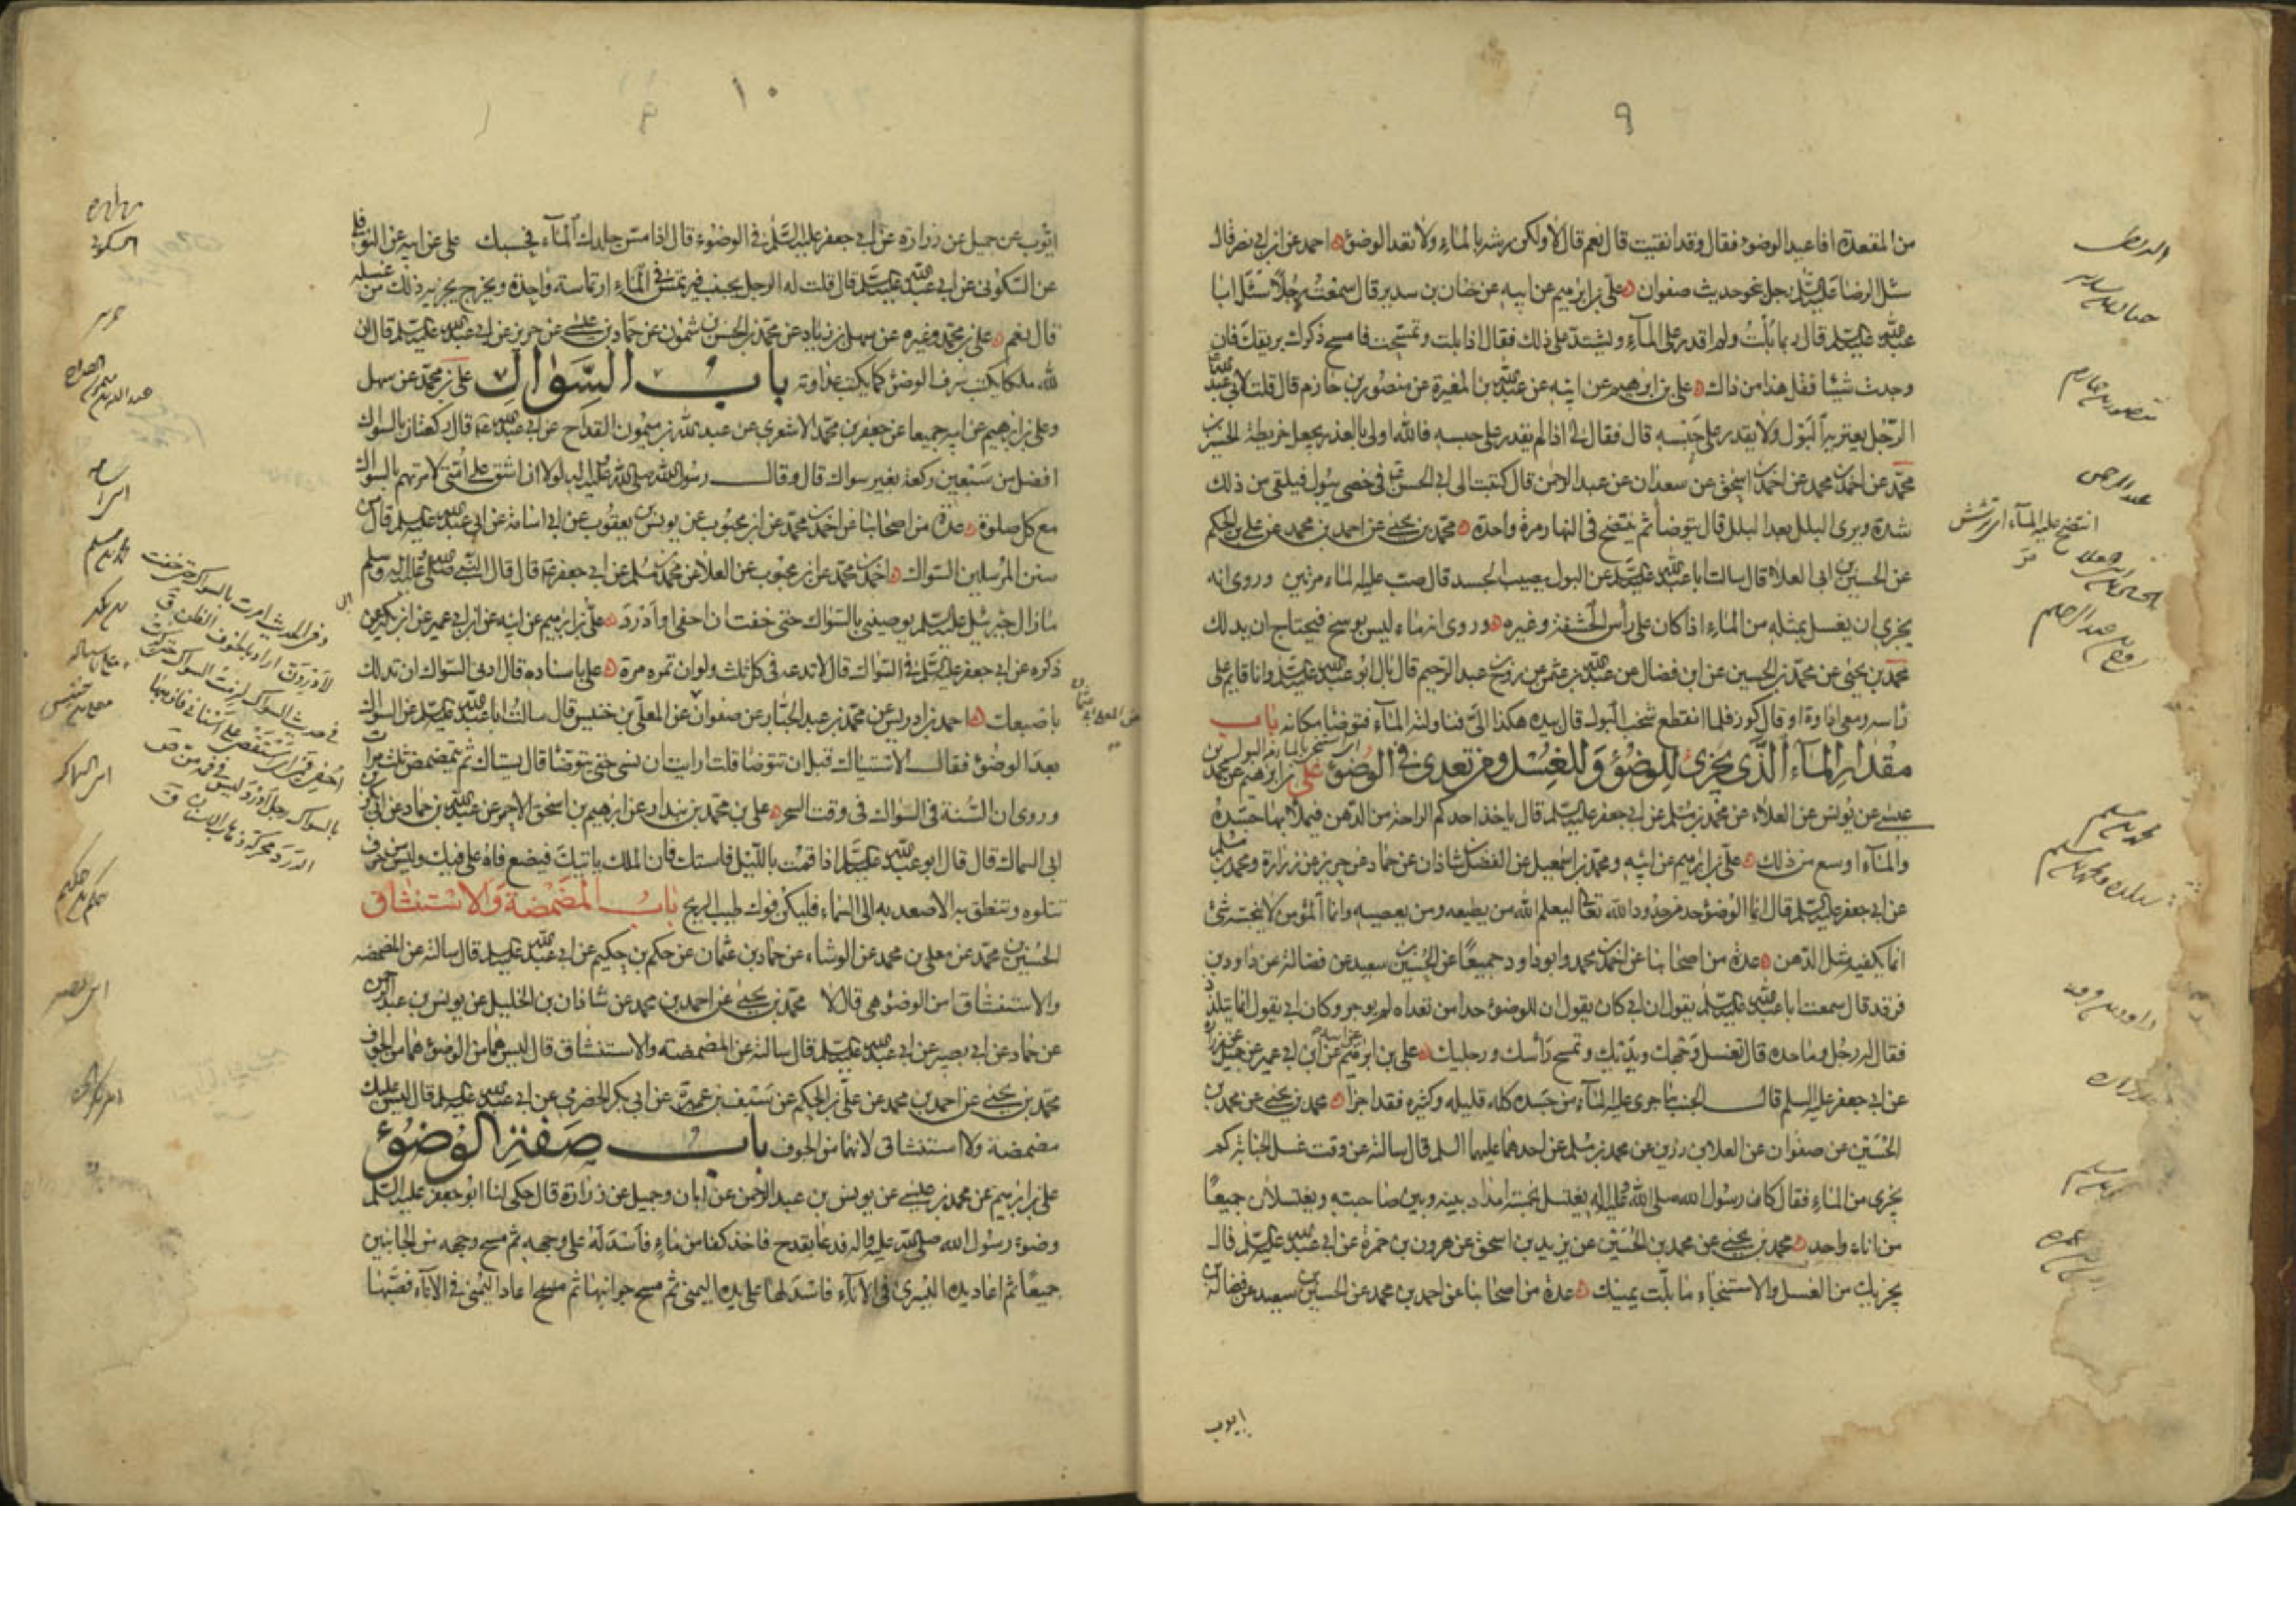 ٩
من المقعدة افاعيد الوضوء فقال وقد انقيت قال نعم قال لا ولكن رشه بالماء ولا تعد الوضوء احمد عن ابن ابي نصر قال
سئل الرضا عليه السلم رجل نحو حديث صفوان علي بن ابرهيم عن ابيه عن حنان بن سدير قال سمعت رجلا سئل ابا
عبد الله عليه السلم قال ربما بلت ولم اقدر على الماء ويشتد على ذلك فقال اذا بلت وتمسحت فامسح ذكرك بريقك فان
وجدت شيئا فقل هذا من ذاك علي بن ابرهيم عن ابيه عن عبد الله بن المغيرة عن منصور بن حازم قال قلت لابي عبد الله
الرجل يعتريه البول ولا يقدر على حبسه قال فقال لي اذا لم يقدر على حبسه فالله اولى بالعذر يجعل خريطة الحسين بن
محمد عن احمد بن محمد عن احمد بن اسحق عن سعدان عن عبد الرحمن قال كتبت الى ابي الحسن في خصي يبول فيلقى من ذلك
شدة ويرى البلل بعد البلل قال يتوضأ ثم ينتضح في النهار مرة واحدة محمد بن يحيى عن احمد بن محمد عن علي بن الحكم
عن الحسين بن ابي العلاء قال سالت ابا عبد الله عليه السلم عن البول يصيب الجسد قال صب عليه الماء مرتين وروى انه
يجزي ان يغسل بمثله من الماء اذا كان على رأس الحشفة وغيره وروى انه ماء ليس بوسخ فيحتاج ان يدلك
محمد بن يحيى عن محمد بن الحسين عن ابن فضال عن عبد الله بن عثمن عن روح بن عبد الرحيم قال بال ابو عبد الله عليه السلم وانا قايم على
راسه ومعي اداوة او قال كوز فلما انقطع شخب البول قال بيده هكذا الي فناولته الماء فتوضا مكانه باب
مقدار الماء الذي يجزئ للوضوء وللغسل ومن تعدى في الوضوء علي بن ابرهيم عن محمد بن
عيسى عن يونس عن العلاء عن محمد بن مسلم عن ابي جعفر عليه السلم قال ياخذ احدكم الراحة من الدهن فيملأ بها جسده
والماء اوسع من ذلك علي بن ابرهيم عن ابيه ومحمد بن اسمعيل عن الفضل بن شاذان عن حماد عن حريز عن زرارة ومحمد بن مسلم
عن ابي جعفر عليه السلم قال انما الوضوء حد من حدود الله تعالى ليعلم الله من يطيعه ومن يعصيه وانما المؤمن لا ينجسه شئ
انما يكفيه مثل الدهن عدة من اصحابنا عن احمد بن محمد وابو داود جميعا عن الحسين بن سعيد عن فضالة عن داود بن
فرقد قال سمعت ابا عبد الله عليه السلم يقول ان ابي كان يقول ان للوضوء حدا من تعداه لم يوجر وكان ابي يقول انما يتلدد
فقال له رجل وما حده قال تغسل وجهك ويديك وتمسح رأسك ورجليك علي بن ابرهيم عن ابيه عن ابن ابي عمير عن جميل عن زرارة
عن ابي جعفر عليه السلم قال الجنب ما جرى عليه الماء من جسده كله قليله وكثيره فقد اجزأ محمد بن يحيى عن محمد بن
الحسين عن صفوان عن العلا بن رزين عن محمد بن مسلم عن احدهما عليهما السلم قال سالته عن وقت غسل الجنابة كم
يجزى من الماء فقال كان رسول الله صلى الله عليه واله يغتسل بخمسة امداد بينه وبين صاحبته ويغتسلان جميعا
من اناء واحد محمد بن يحيى عن محمد بن الحسين عن يزيد بن اسحق عن هرون بن حمزة عن ابي عبد الله عليه السلم قال
يجزيك من الغسل والاستنجاء ما بلت يمينك عدة من اصحابنا عن احمد بن محمد عن الحسين بن سعيد عن فضالة بن
ايوب
منصور بن حازم
عبد الرحمن
انتضح عليه الماء اي ترشش
روح بن عبد الرحيم
محمد بن مسلم
داود بن فرقد
زرارة
١٠
ايوب عن جميل عن زرارة عن ابي جعفر عليه السلم في الوضوء قال اذا مس جلدك الماء فحسبك علي عن ابيه عن النوفلي
عن السكوني عن ابي عبد الله عليه السلم قال قلت له الرجل يجنب فيرتمس في الماء ارتماسة واحدة ويخرج يجزيه ذلك من غسله
قال نعم علي بن محمد وغيره عن سهل بن زياد عن محمد بن الحسن بن شمون عن حماد بن عيسى عن حريز عن ابي عبد الله عليه السلم قال ان
لله ملكا يكتب سرف الوضوء كما يكتب عداوته باب السواك علي بن محمد عن سهل
وعلي بن ابرهيم عن ابيه جميعا عن جعفر بن محمد الاشعري عن عبد الله بن ميمون القداح عن ابي عبد الله ع قال ركعتان بالسواك
افضل من سبعين ركعة بغير سواك قال وقال رسول الله صلى الله عليه واله لولا ان اشق على امتي لامرتهم بالسواك
مع كل صلوة عدة من اصحابنا عن احمد بن محمد عن ابن محبوب عن يونس بن يعقوب عن ابي اسامة عن ابي عبد الله عليه السلم قال من
سنن المرسلين السواك احمد بن محمد عن ابن محبوب عن العلا عن محمد بن مسلم عن ابي جعفر ع قال قال النبي صلى الله عليه واله وسلم
ما زال جبرئيل عليه السلم يوصيني بالسواك حتى خفت ان احفى او ادرد علي بن ابرهيم عن ابيه عن ابن ابي عمير عن ابن بكير عمن
ذكره عن ابي جعفر عليه السلم في السواك قال لا تدعه في كل ثلث ولو ان تمره مرة علي باسناده قال ادنى السواك ان تدلك
باصبعك احمد بن ادريس عن محمد بن عبد الجبار عن صفوان عن المعلى بن خنيس قال سالت ابا عبد الله عليه السلم عن السواك
بعد الوضوء فقال الاستياك قبل ان تتوضا قلت ارايت ان نسي حتى يتوضا قال يستاك ثم يتمضمض ثلث مرات
وروى ان السنة في السواك في وقت السحر علي بن محمد بن بندار عن ابرهيم بن اسحق الاحمر عن عبد الله بن حماد عن ابي بكر بن
ابي السماك قال قال ابو عبد الله عليه السلم اذا قمت بالليل فاستك فان الملك ياتيك فيضع فاه على فيك وليس من حرف
تتلوه وتنطق به الا صعد به الى السماء فليكن فوك طيب الريح باب المضمضة والاستنشاق
الحسين بن محمد عن معلى بن محمد عن الوشاء عن حماد بن عثمان عن حكم بن حكيم عن ابي عبد الله عليه السلم قال سالته عن المضمضه
والاستنشاق امن الوضوء هي قال لا محمد بن يحيى عن احمد بن محمد عن شاذان بن الخليل عن يونس بن عبد الرحمن
عن حماد عن ابي بصير عن ابي عبد الله عليه السلم قال سالته عن المضمضه والاستنشاق قال ليس هما من الوضوء هما من الجوف
محمد بن يحيى عن احمد بن محمد عن علي بن الحكم عن سيف بن عميرة عن ابي بكر الحضرمي عن ابي عبد الله عليه السلم قال ليس عليك
مضمضة ولا استنشاق لانهما من الجوف باب صفة الوضوء
علي بن ابرهيم عن محمد بن عيسى عن يونس بن عبد الرحمن عن ابان وجميل عن زرارة قال حكى لنا ابو جعفر عليه السلم
وضوء رسول الله صلى الله عليه واله فدعا بقدح فاخذ كفا من ماء فاسدله على وجهه ثم مسح وجهه من الجانبين
جميعا ثم اعاد يده اليسرى في الاناء فاسدلها على يده اليمنى ثم مسح جوانبها ثم مسح اعاد اليمنى في الاناء فصبها
السكوني
محمد بن مسلم
معلى بن خنيس
حكم بن حكيم
وفي الحديث امرت بالسواك حتى خفت
في حديث السواك لزمت السواك حتى
بالسواك رجل ادرد ليس في فمه سن ص
الدرد محركة ذهاب الاسنان ق